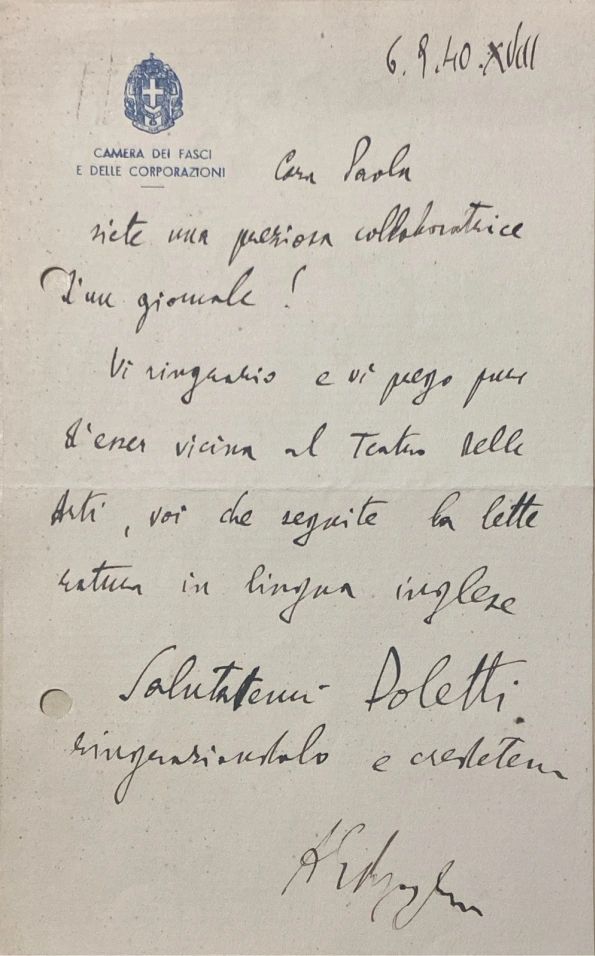 6.9.40.XVIII
CAMERA DEI FASCI
E DELLE CORPORAZIONI
Cara Paola
siete una preziosa collaboratrice
d'un giornale!
Vi ringrazio e vi prego pure
d'esser vicina al Teatro delle
Arti, voi che seguite la lette
ratura in lingua inglese
Salutatemi Doletti
ringraziandolo e credetemi